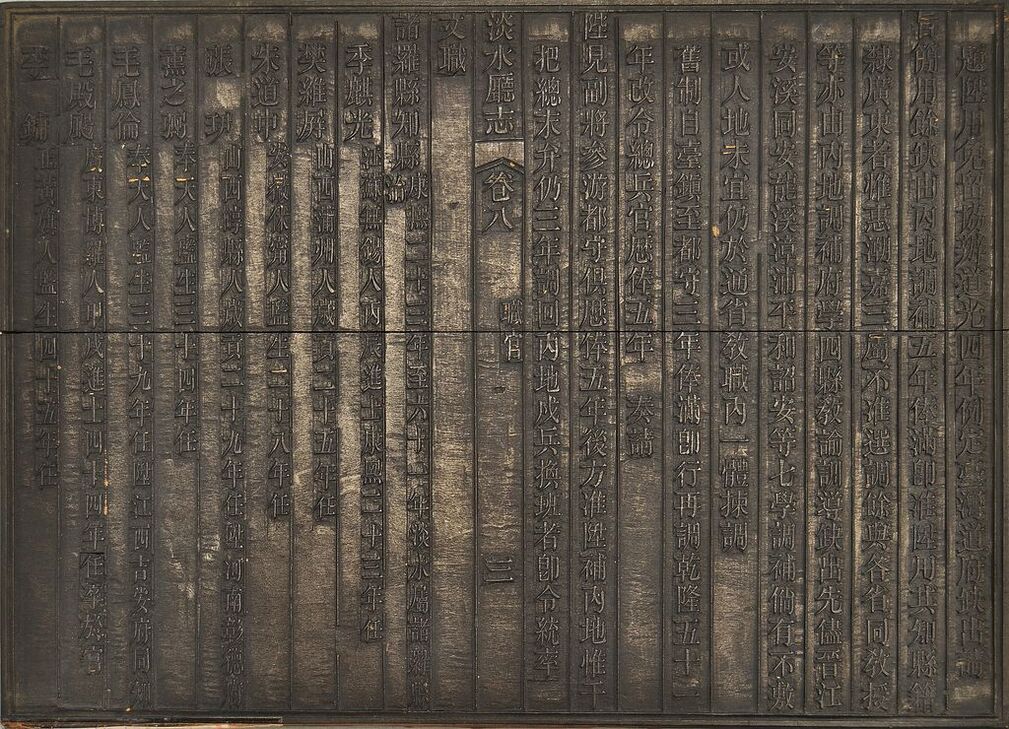 陞用免留協辦道光四年例定臺灣道府缺出請
旨簡用餘缺由內地調補五年俸滿即准陞用其知縣籍
隸廣東者惟惠潮嘉三屬不准選調餘與各省同教授
等亦由內地調補府學四縣教諭訓導缺出先儘晉江
安溪同安龍溪漳浦平和詔安等七學調補倘有不敷
或人地未宜仍於通省教職內一體揀調
舊制自臺鎮至都守三年俸滿即行再調乾隆五十二
年改令總兵官歷俸五年 奏請
陛見副將參游都守俱歷俸五年後方准陞補內地惟千
把總末弁仍三年調回內地戍兵換班者即令統率
淡水廳志 卷八 職官 三
文職
諸羅縣知縣 康熙二十三年至六十一年淡水屬諸羅縣治
季麒光 江蘇無錫人丙辰進士康熙二十三年任
樊維屏 山西蒲州人歲貢二十五年任
朱道中 安徽休寧人監生二十八年任
張玥 山西崞縣人歲貢二十九年任陞河南彰德府
董之弼 奉天人監生三十四年任
毛鳳倫 奉天人監生三十九年任陞江西吉安府同知
毛殿颺 廣東博羅人甲戌進士四十四年任卒於官
李鏞 人監生四十五年任